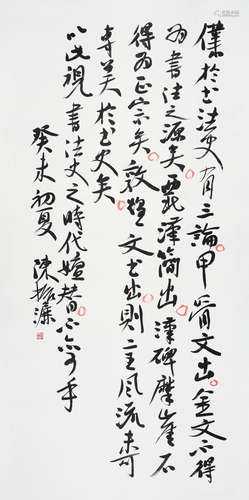 僕於書法史有三論甲骨文出金文不得
为書法之源矣漢簡出漢碑摩崖不
得为正宗矣敦煌文書出則二王風流未可
専美於書史矣
以此視書法史之時代嬗替不亦可乎
癸未初夏陳振濂